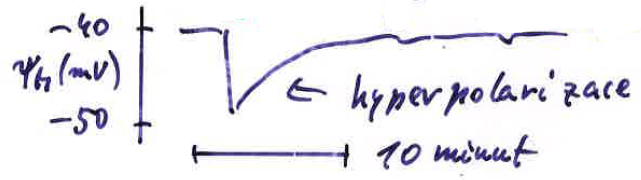 -40
(mV)
-50
hyperpolarizace
10 minut